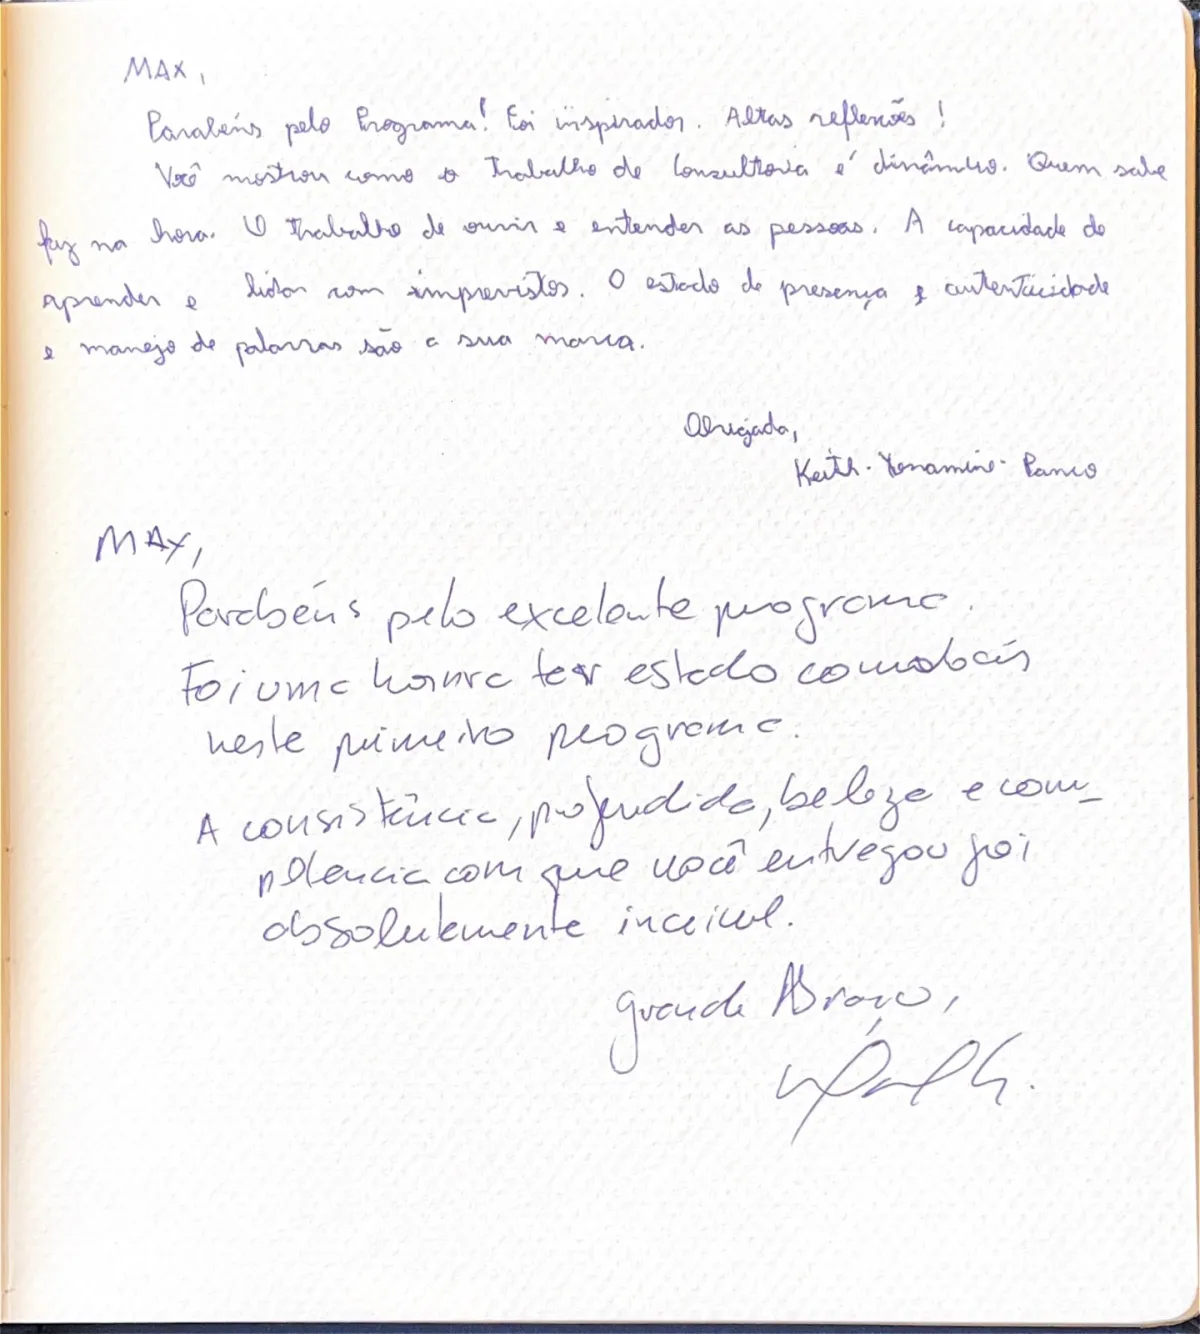 MAX,
Parabéns pelo Programa! Foi inspirador. Altas reflexões!
Você mostrou como o Trabalho de Consultoria é dinâmico. Quem sabe
faz na hora. O Trabalho de ouvir e entender as pessoas. A capacidade de
aprender e lidar com imprevistos. O estado de presença e autenticidade
e manejo de palavras são a sua marca.
Obrigada,
Keith
MAX,
Parabéns pelo excelente programa.
Foi uma honra ter estado com
neste primeiro programa.
A consistência, profundida, beleza e com_
petencia com que você entregou foi
absolutamente incrivel.
Grande Abraço,